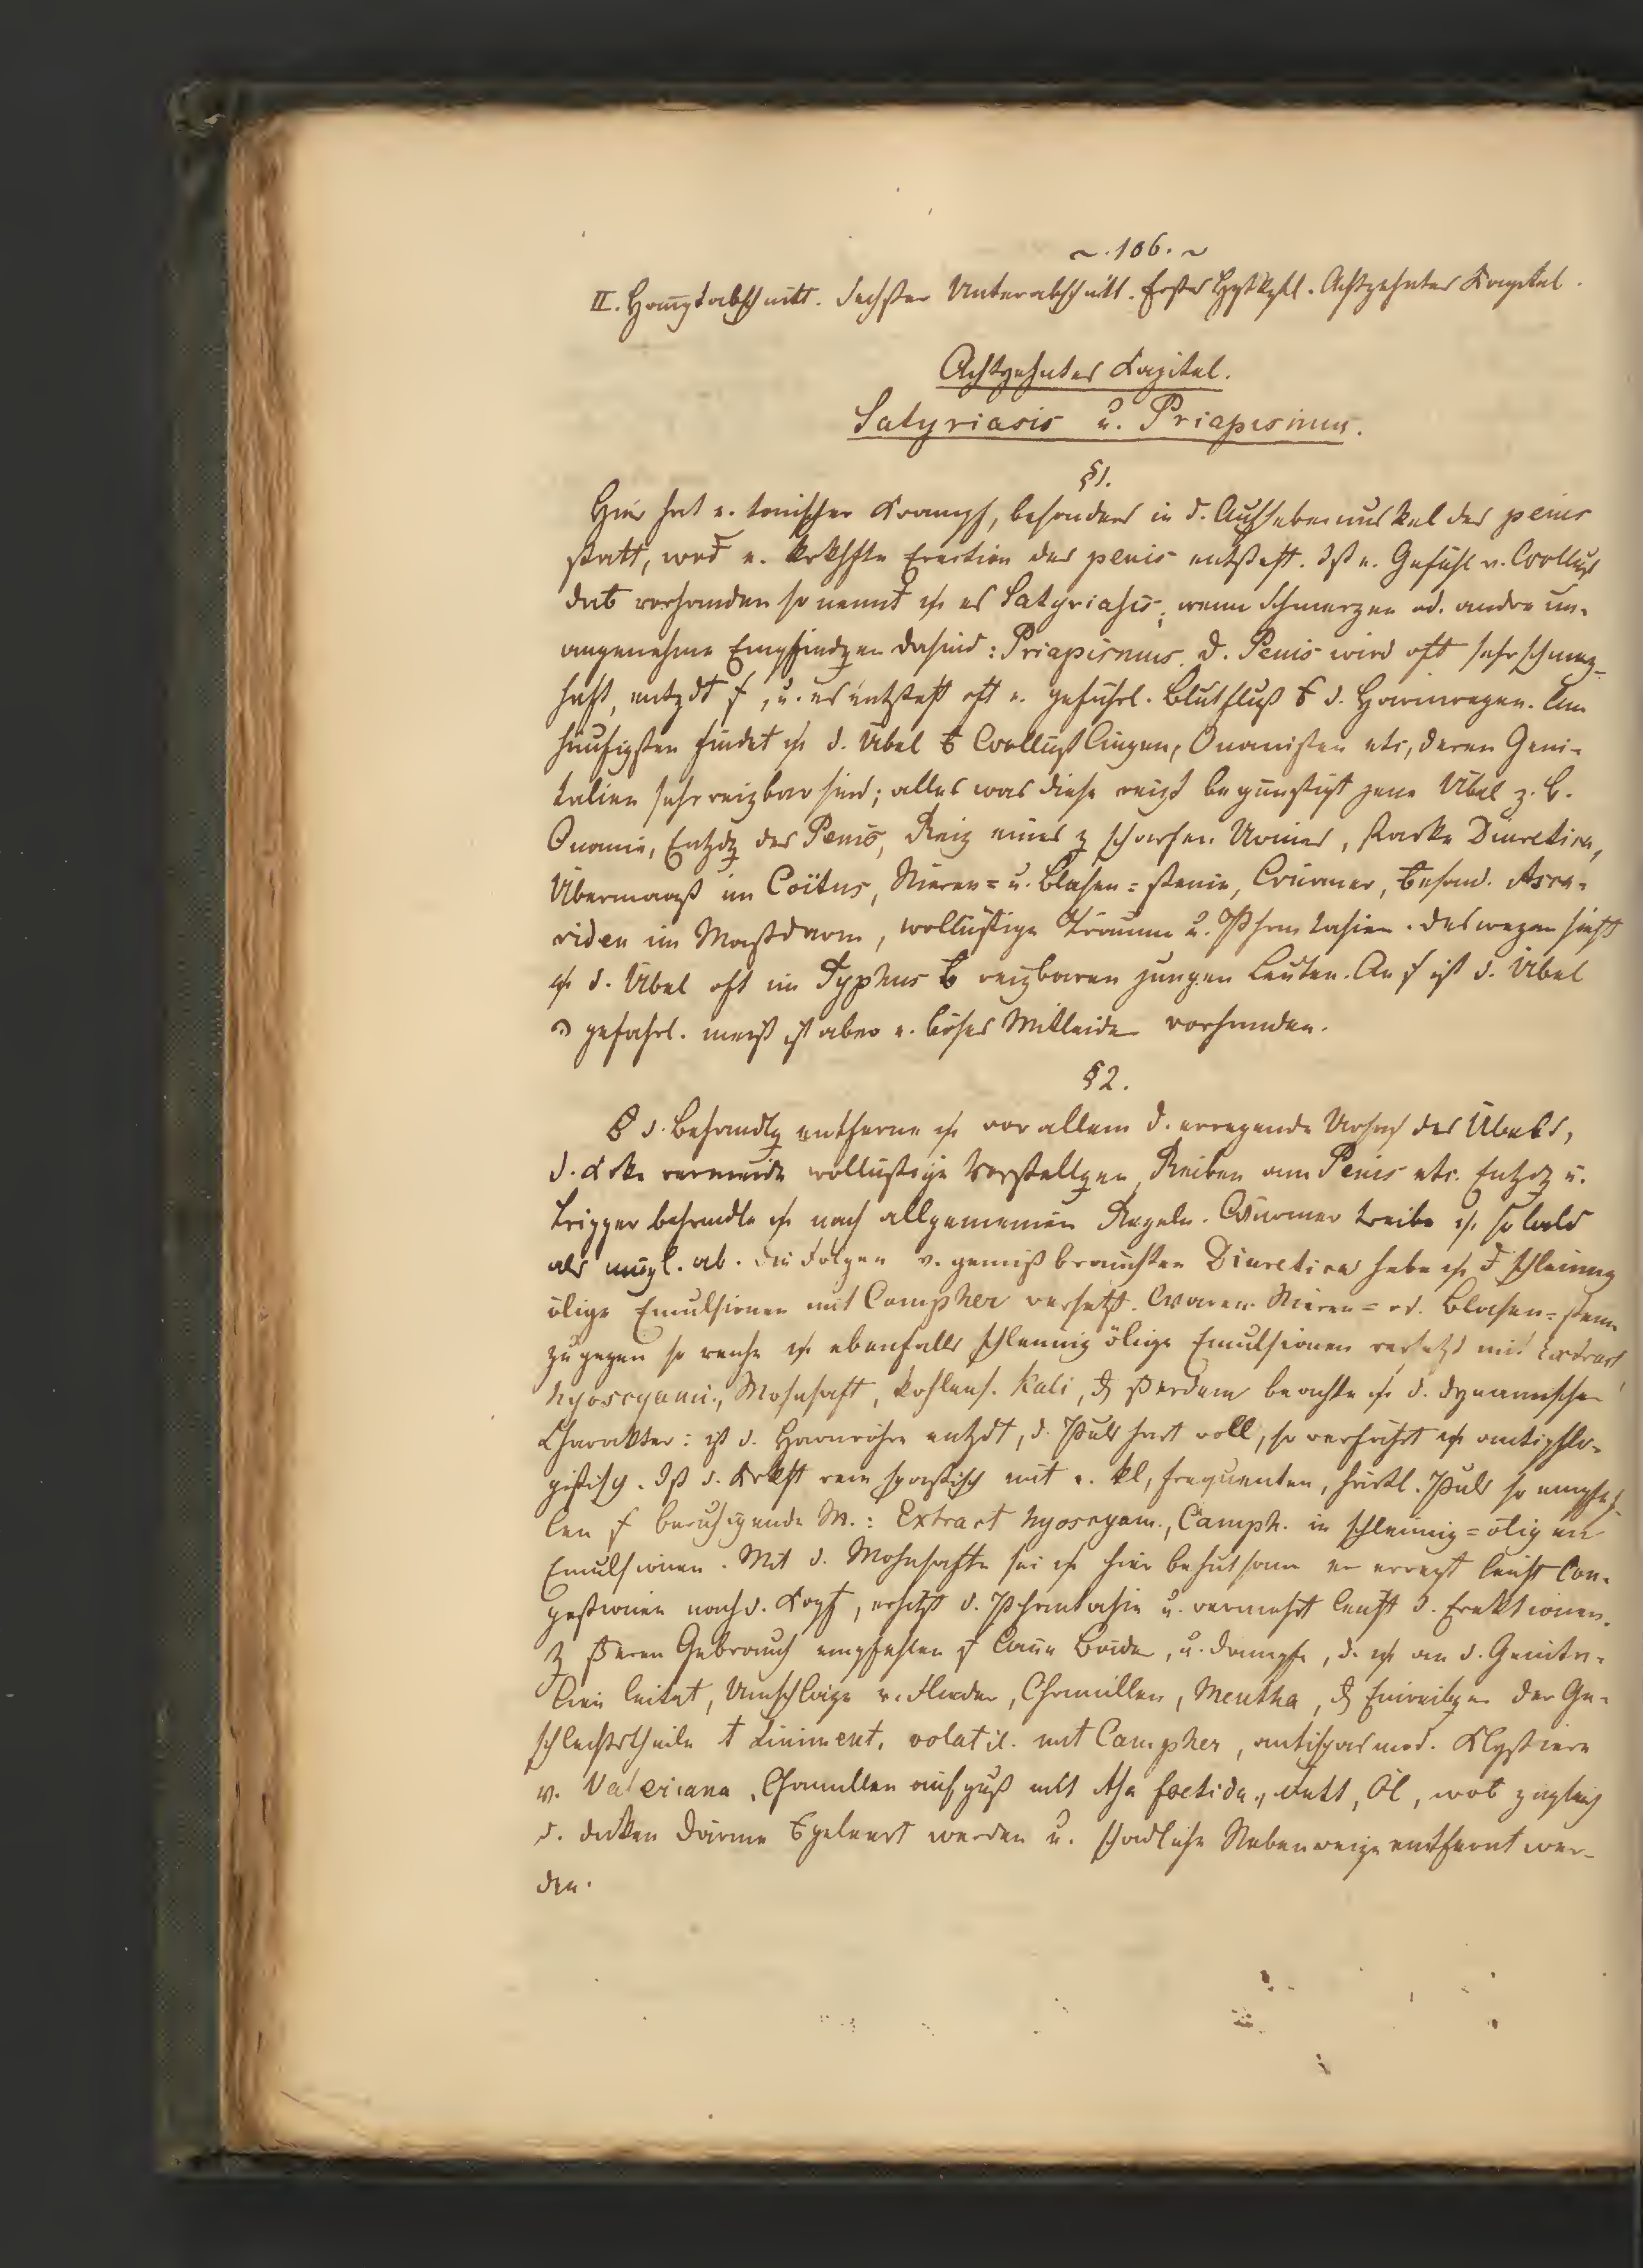 ~. 106. ~
II. Hauptabschnitt. Sechster Unterabschnitt. Erstes Hptkptl. Achtzehntes Kapitel.
Achtzehntes Kapitel.
Satyriasis u. Priapismus.
§1.
Hier hat e. tonischer Krampf, besonders in d. Aufhebemuskel des penis
statt, wod e. krkhfte Erection des penis entsteht. Ist e. Gefühl v. Wollust
dab vorhanden so nennt es Satyriasis; wenn Schmerzen od. andre un-
angenehme Empfindgen dasind: Priapismus. D. Penis wird oft sehr schmerz-
haft, entzdt, u. es entsteht oft e. gefährl. Blutfluß d. Harnwegen. Am
häufigsten findet d. Übel Wollüstlingen, Onanisten etc, deren Geni-
talien sehr reizbar sind; alles was diese reizt begünstigt jene Übel z. B.
Onanie, Entzdg des Penis, Reiz eines z scharfen Urines, starke Diuretica,
Übermaaß im Coïtus, Nieren= u. Blasen=steine, Würmer, besond. Asca-
riden im Mastdarm, wollüstige Träume u. Phantasien. Deswegen sieht
d. Übel oft im Typhus reizbaren jungen Leuten. An ist d. Übel
gefährl. meist ist aber e. böses Mitleiden vorhanden.
§2.
d. Behandlg entferne vor allem d. erregende Ursach des Übels,
d. Krke vermeide wollüstige Vorstellgen, Reiben am Penis etc. Entzdg u.
Tripper behandle nach allgemeinen Regeln. Würmer treibe so bald
als mögl. ab. Die Folgen v. gemißbrauchten Diuretica hebe schleimig
ölige Emulsionen mit Campher versetzt. Waren Nieren= od. Blasen=steine
zugegen so reiche ebenfalls schleimig ölige Emulsionen versetzt mit Extract
hyoscyami, Mohnsaft, kohlens. Kali, beachte d. dynamischen
Charakter: ist d. Harnröhre entzdt, d. Puls hart voll, so verfährt antiphlo-
gistisch. Ist d. Krkht rein spastisch mit e. kl, frequenten, härtl. Puls so empfeh-
len beruhigende M.: Extract hyoscyam., Camph. in schleimig=öligen
Emulsionen. Mit d. Mohnsafte sei hier behutsam er erregt leicht Con-
gestionen nach d. Kopf, erhitzt d. Phantasie u. vermehrt leicht d. Erektionen.
Gebrauch empfehlen laue Bäder, u. Dämpfe, d. an d. Genita-
lien leitet, Umschläge v. Flieder, Chamillen, Mentha, Einreibgen der Ge-
schlechtstheile Liniment. volatil. mit Campher, antispasmod. Klystiere
v. Valeriana, Chamillenaufguß mit Asa foetida, Öl, wob zugleich
d. dicken Därme geleert werden u. schädliche Nebenreize entfernt wer-
den.